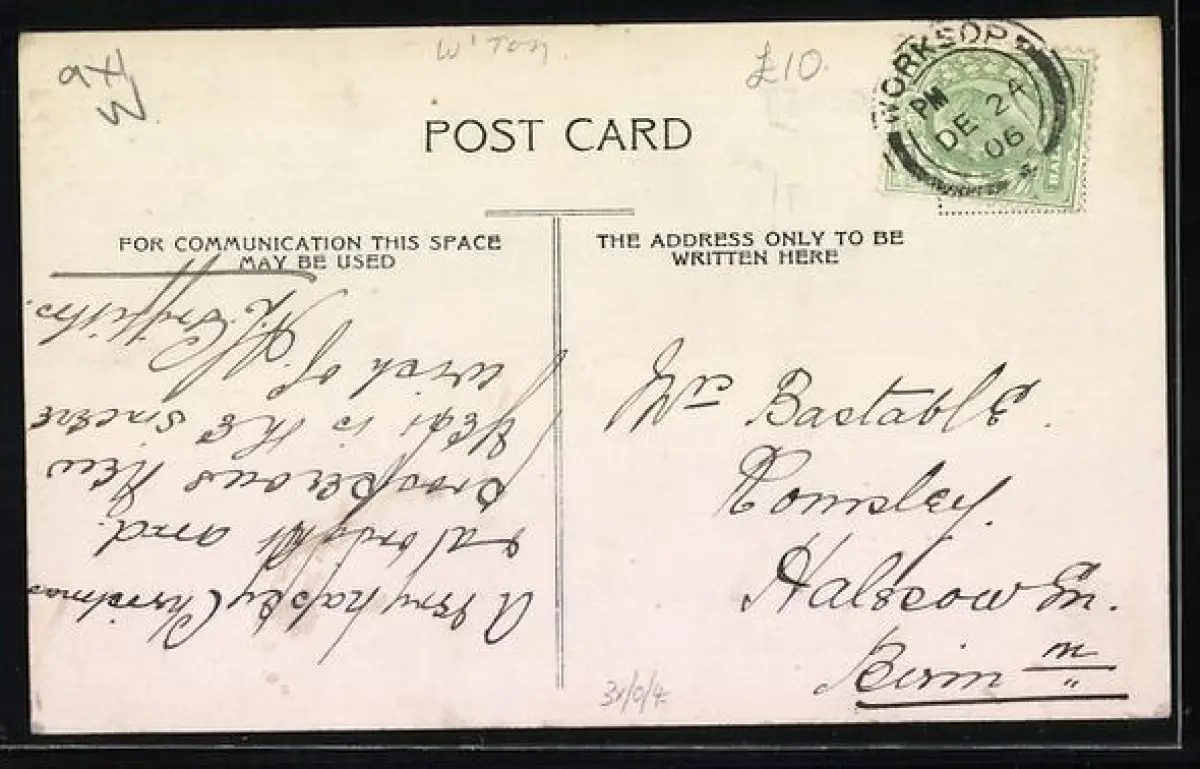 W'Ton.
£10.
WORKSOP
PM
DE 24
06
POST CARD
FOR COMMUNICATION THIS SPACE
MAY BE USED
A very happy Christmas
and
prosperous New
Year is the sincere
wish of H. Griffiths.
THE ADDRESS ONLY TO BE
WRITTEN HERE
Bastable.
Romsley.
Halesowen.
Birm m